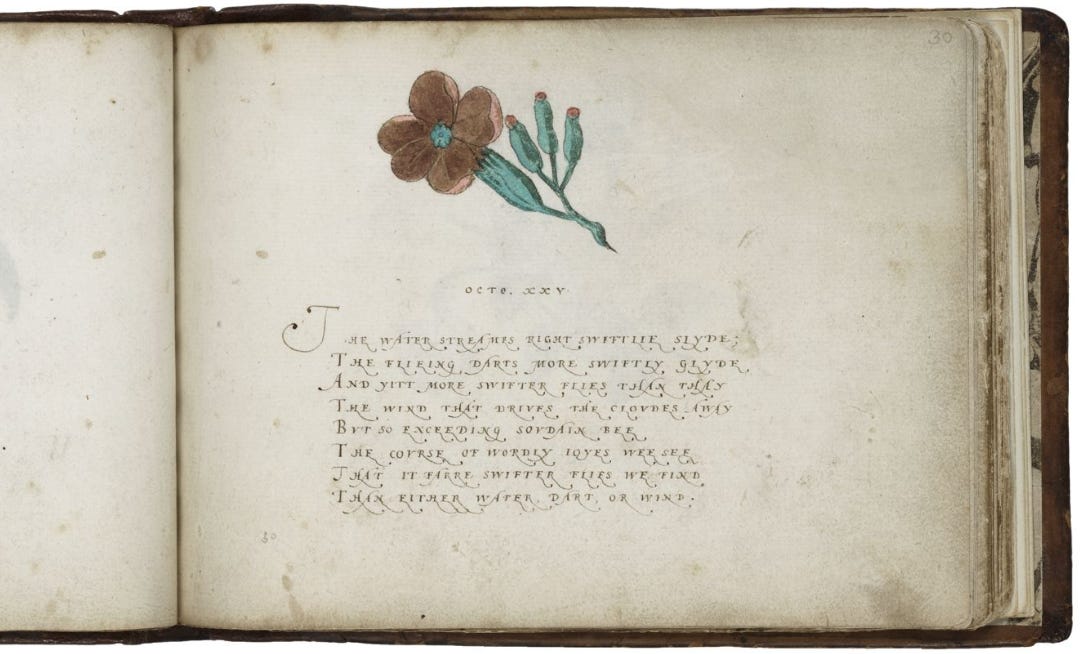 30
OCTO. XXV.
THE WATER STREAMES RIGHT SWIFTLIE SLYDE;
THE FLIEING DARTS MORE SWIFTLY GLYDE,
AND YITT MORE SWIFTER FLIES THAN THAY
THE WIND THAT DRIVES THE CLOVDES AWAY
BVT SO EXCEEDING SOVDAIN BEE
THE COVRSE OF WORDLY IOYES WEE SEE
THAT IT FARRE SWIFTER FLIES WE FIND
THAN EITHER WATER, DART, OR WIND.
30